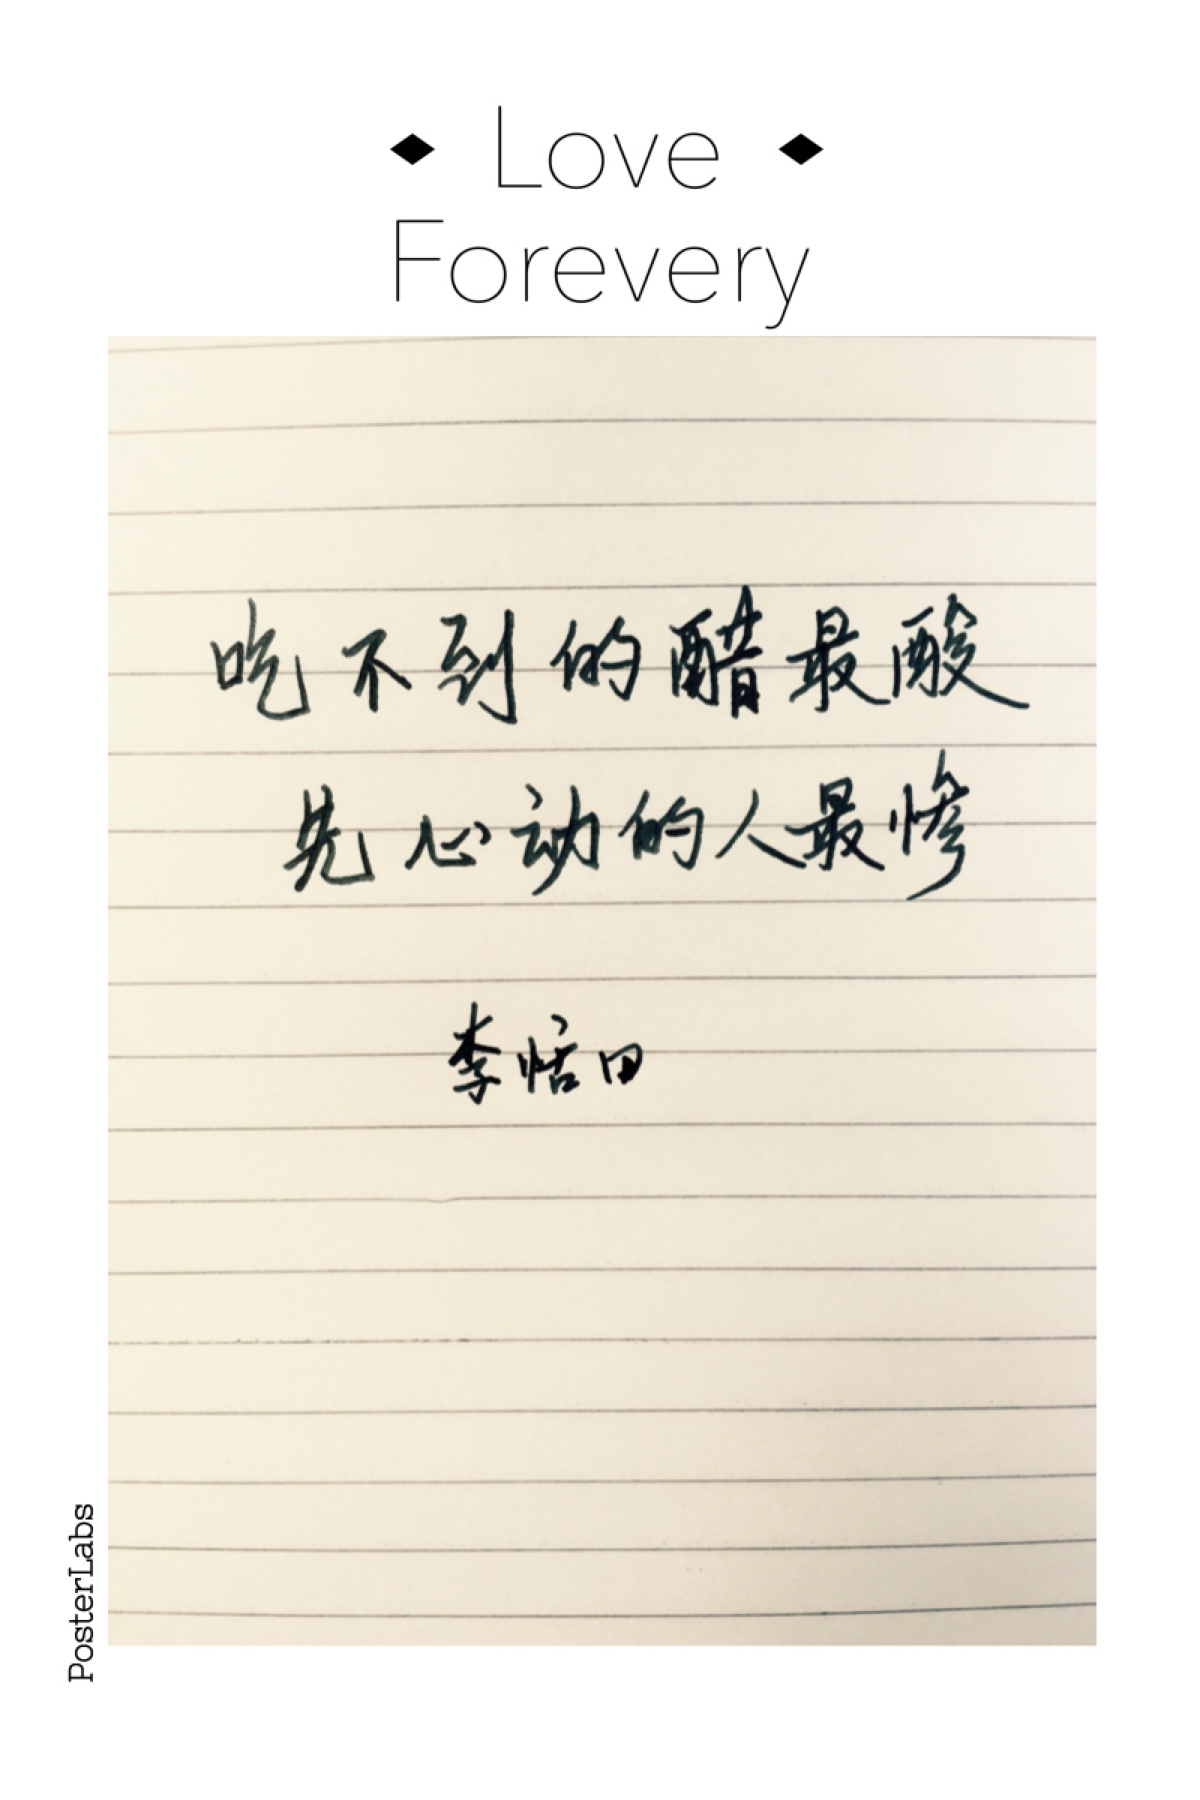 Love
Forevery
吃不到的醋最酸
先心动的人最惨
李恬田
PosterLabs